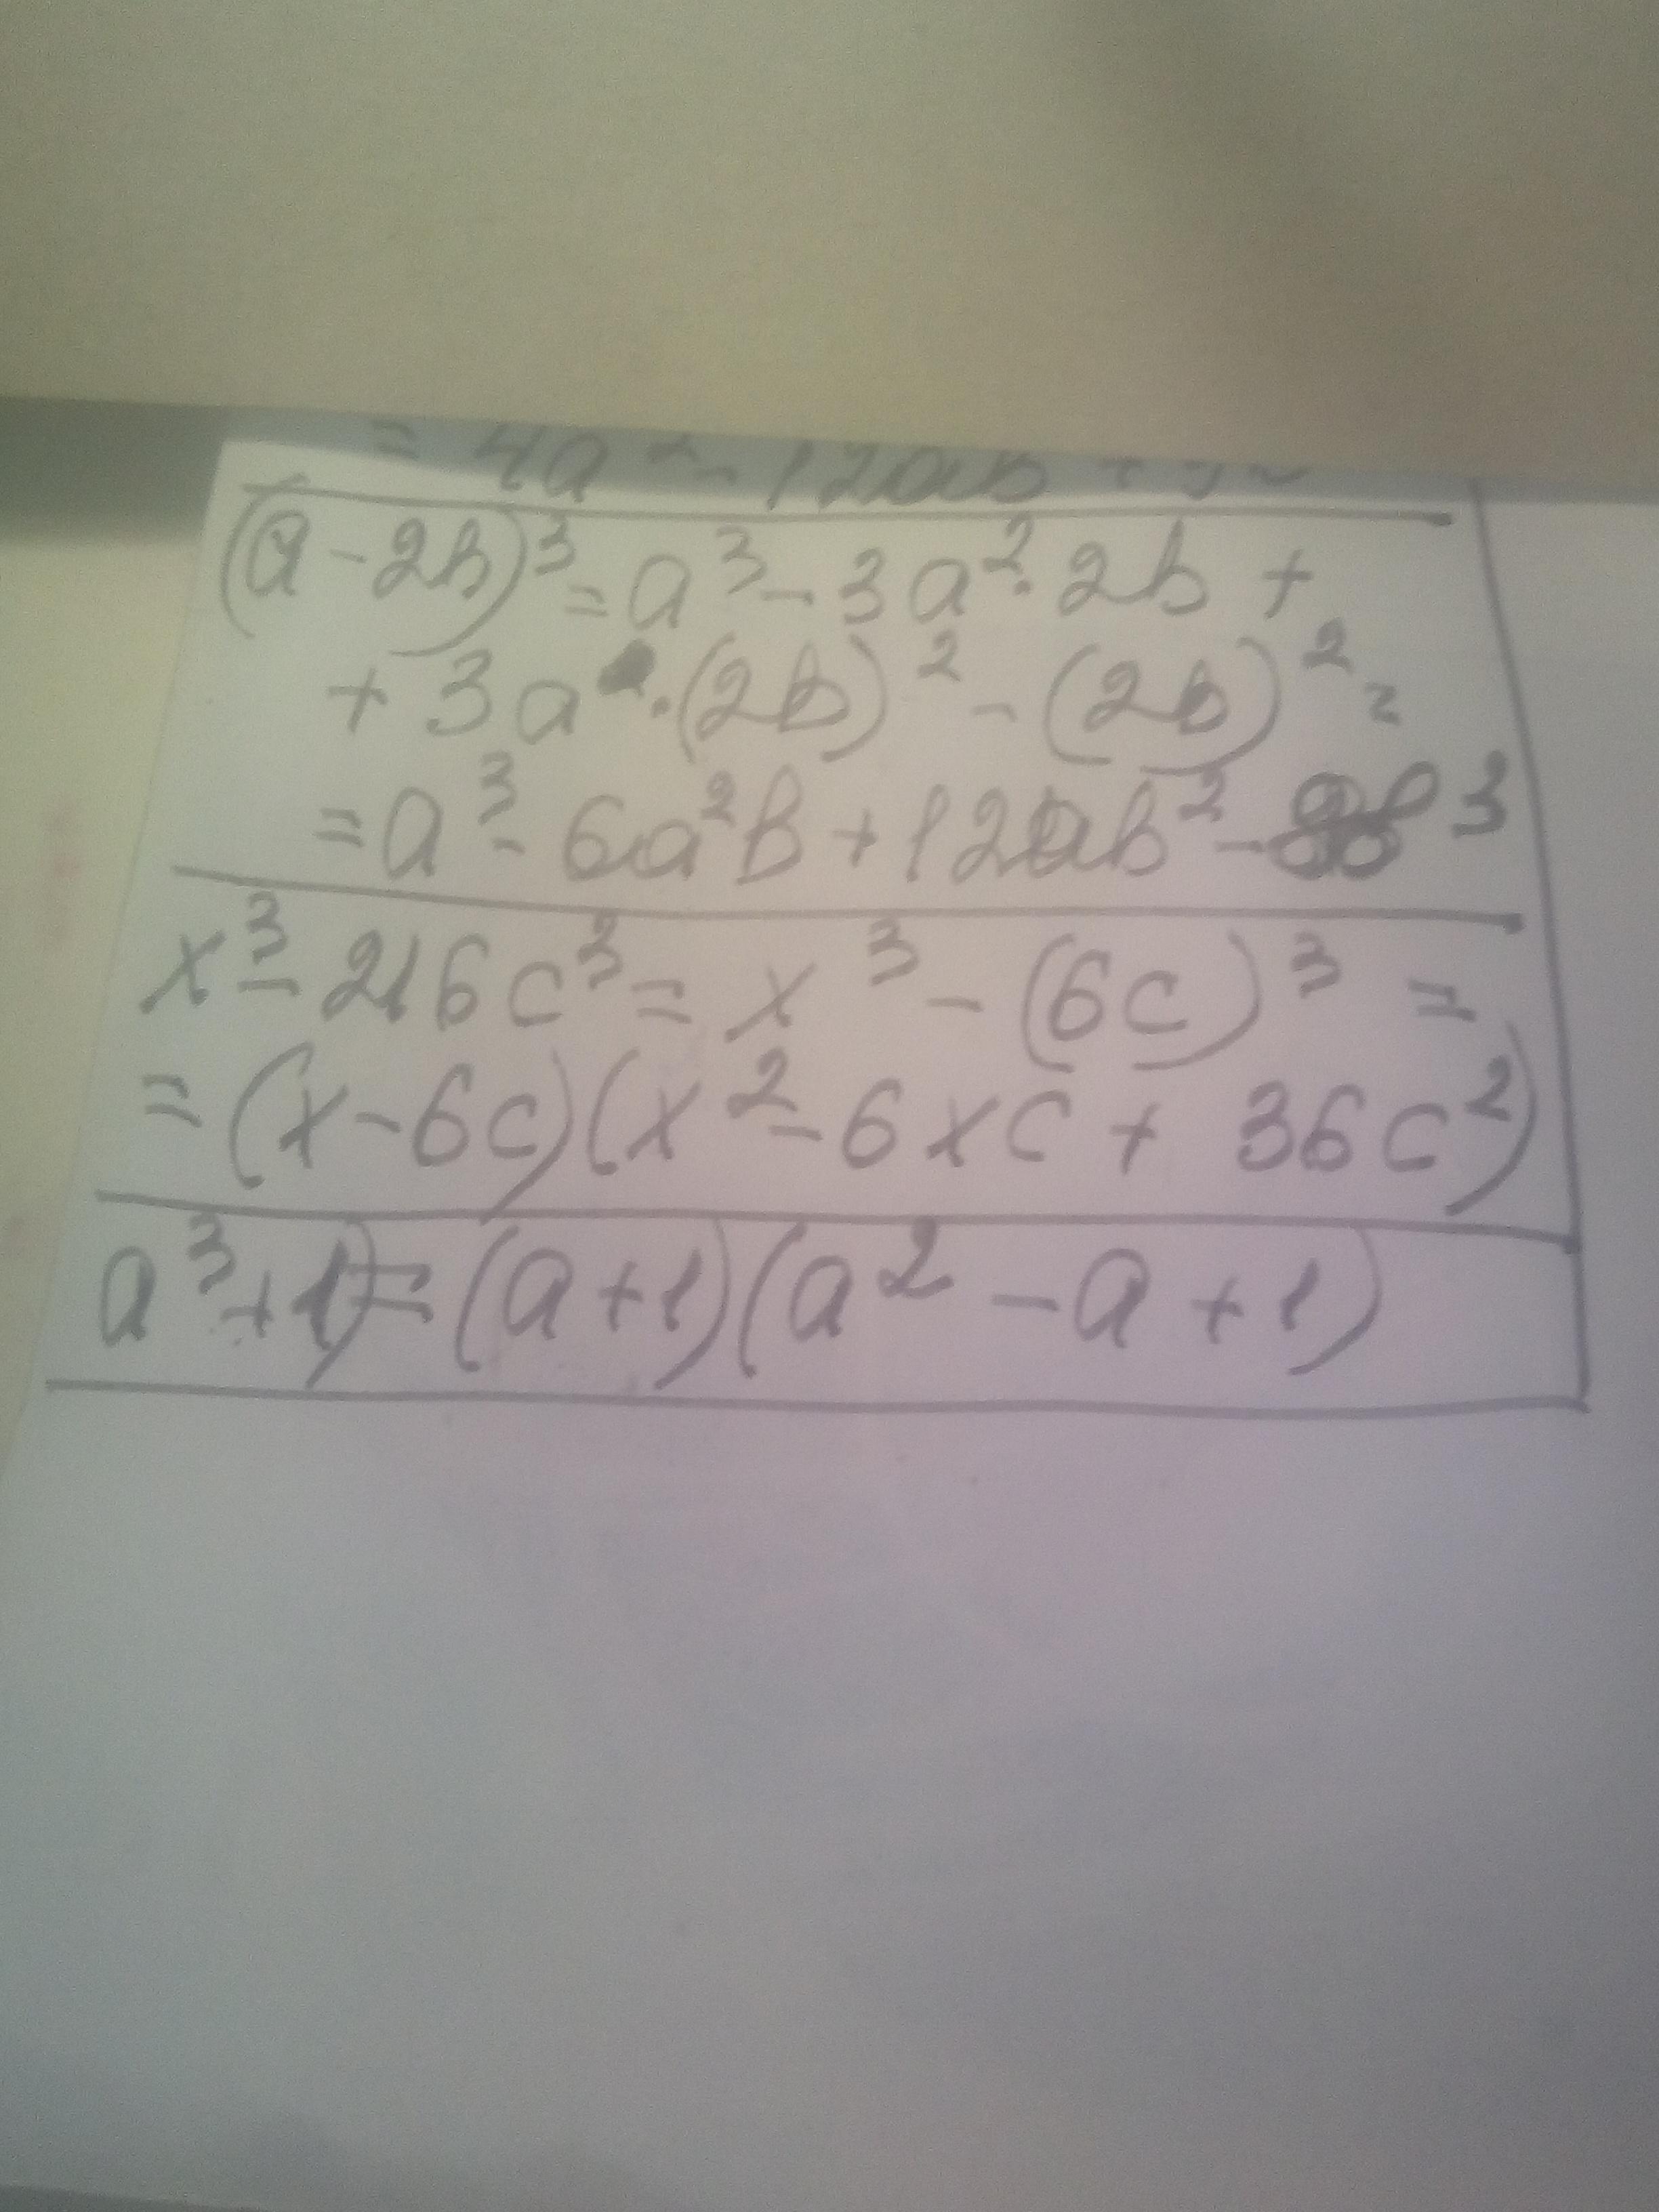 = 4a² - 12ab +
(a - 2b)³ = a³ - 3a² · 2b +
+ 3a · (2b)² - (2b)² =
= a³ - 6a²b + 12ab² - 8b³
x³ - 216c³ = x³ - (6c)³ =
= (x - 6c)(x² - 6xc + 36c²)
a³ + 1) = (a + 1)(a² - a + 1)